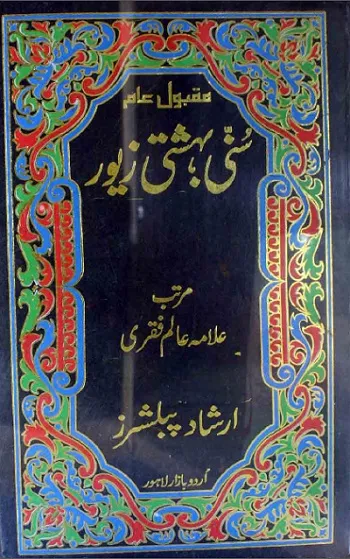 مقبول عام
سُنّی بہشتی زیور
مرتب
علامہ عالم فقری
ارشاد پبلشرز
اُردو بازار لاہور